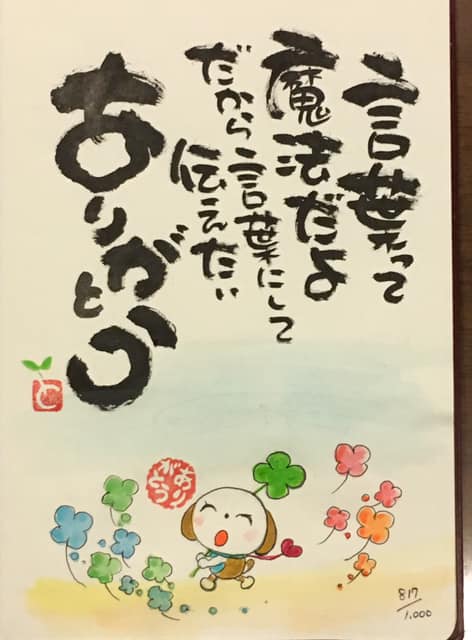 言葉って
魔法だよ
だから言葉にして
伝えたい
ありがとう
と
ありがとう
817/1,000